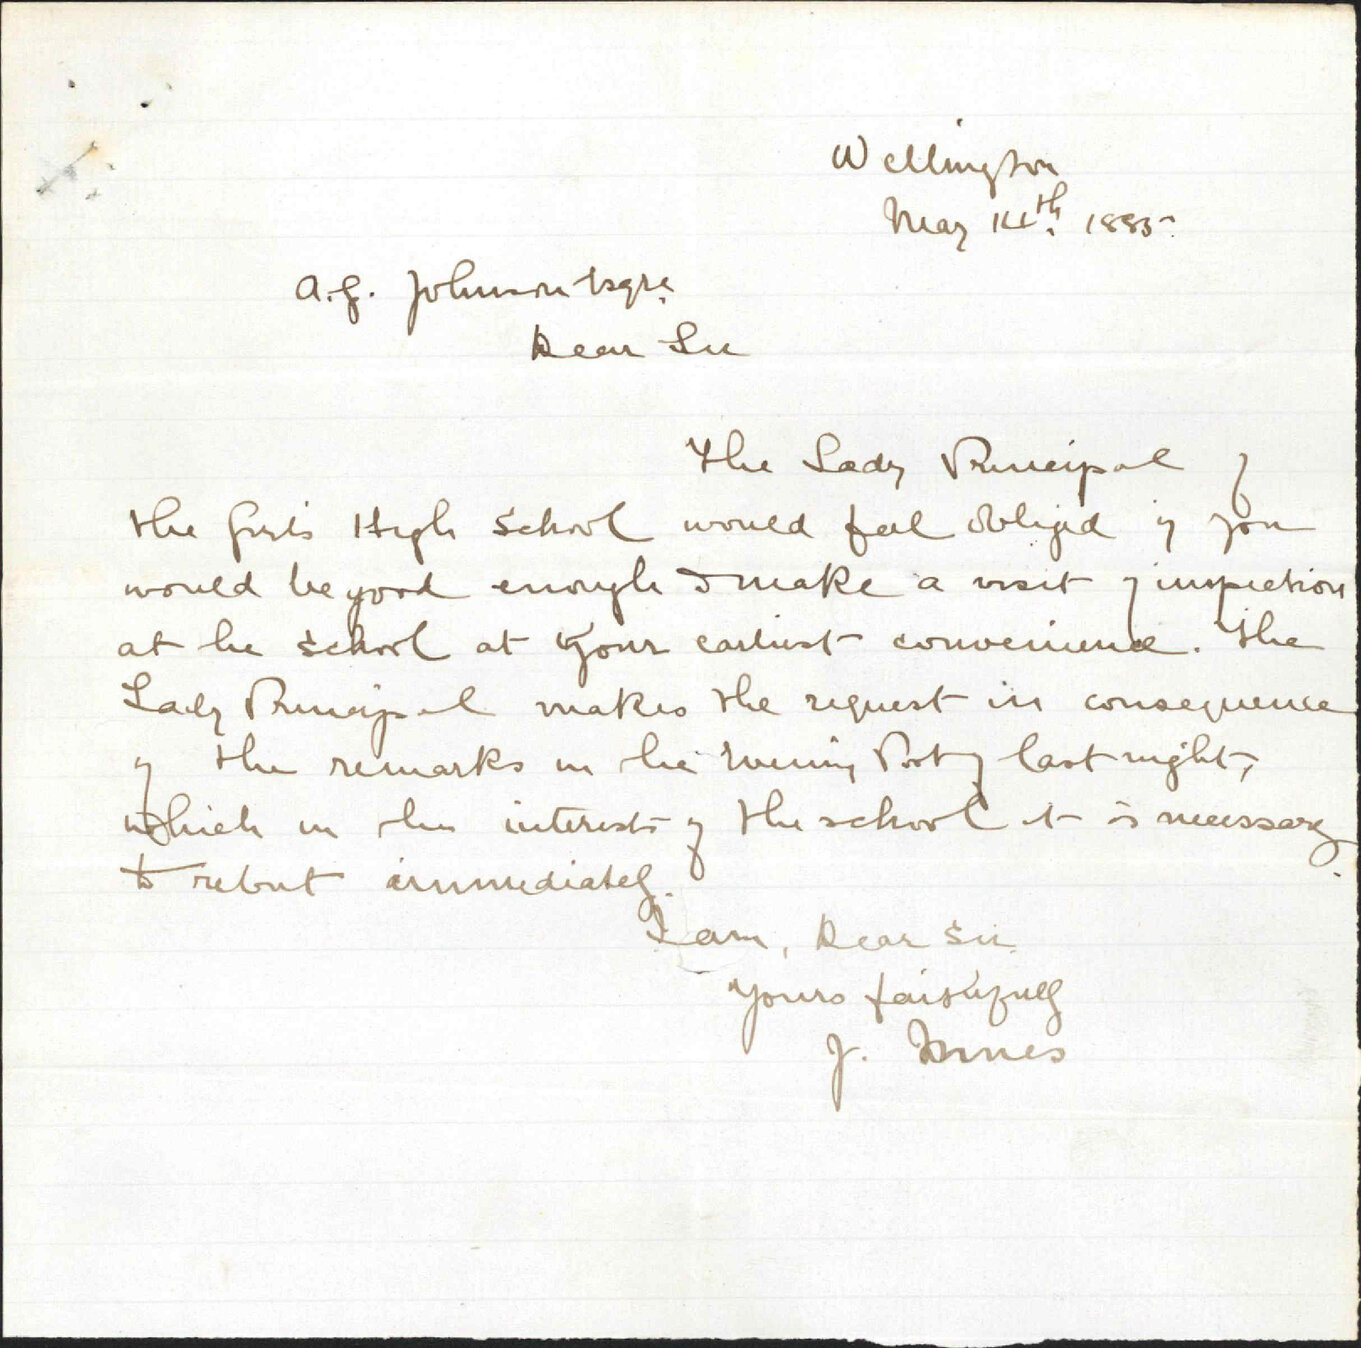 Wellington
May 14th. 1885.
A.G. Johnson Esqre.
Dear Sir
The Lady Principal of
the Girls High School would feel obliged if you
would be good enough to make a visit of inspection
at the School at your earliest convenience. The
Lady Principal makes the request in consequence
of the remarks in the Evening Post of last night,
which in the interests of the school it is necessary
to rebut immediately.
I am, Dear Sir
Yours faithfully
J. Innes